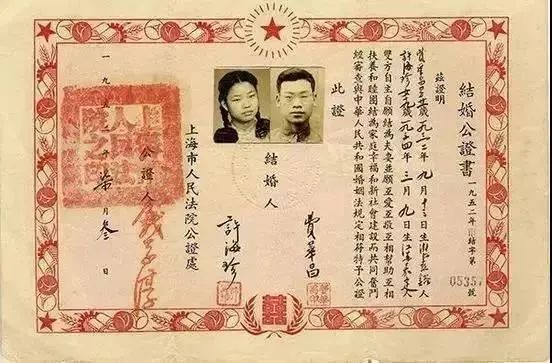 結婚公證書
一九五二年
結字第
0535
號
茲證明
華昌
九月十三日生
人
許海珍女
歲
三月九日生
人
雙方自主自願結為夫妻並願互愛互敬互相幫助互相
扶養和睦團結為家庭幸福和新社會建設而共同奮鬥
經審查與中華人民共和國婚姻法規定相符特予公證
此證
結婚人
華昌
許海珍
上海市人民法院公證處
公證人
一九五
柒月叁日